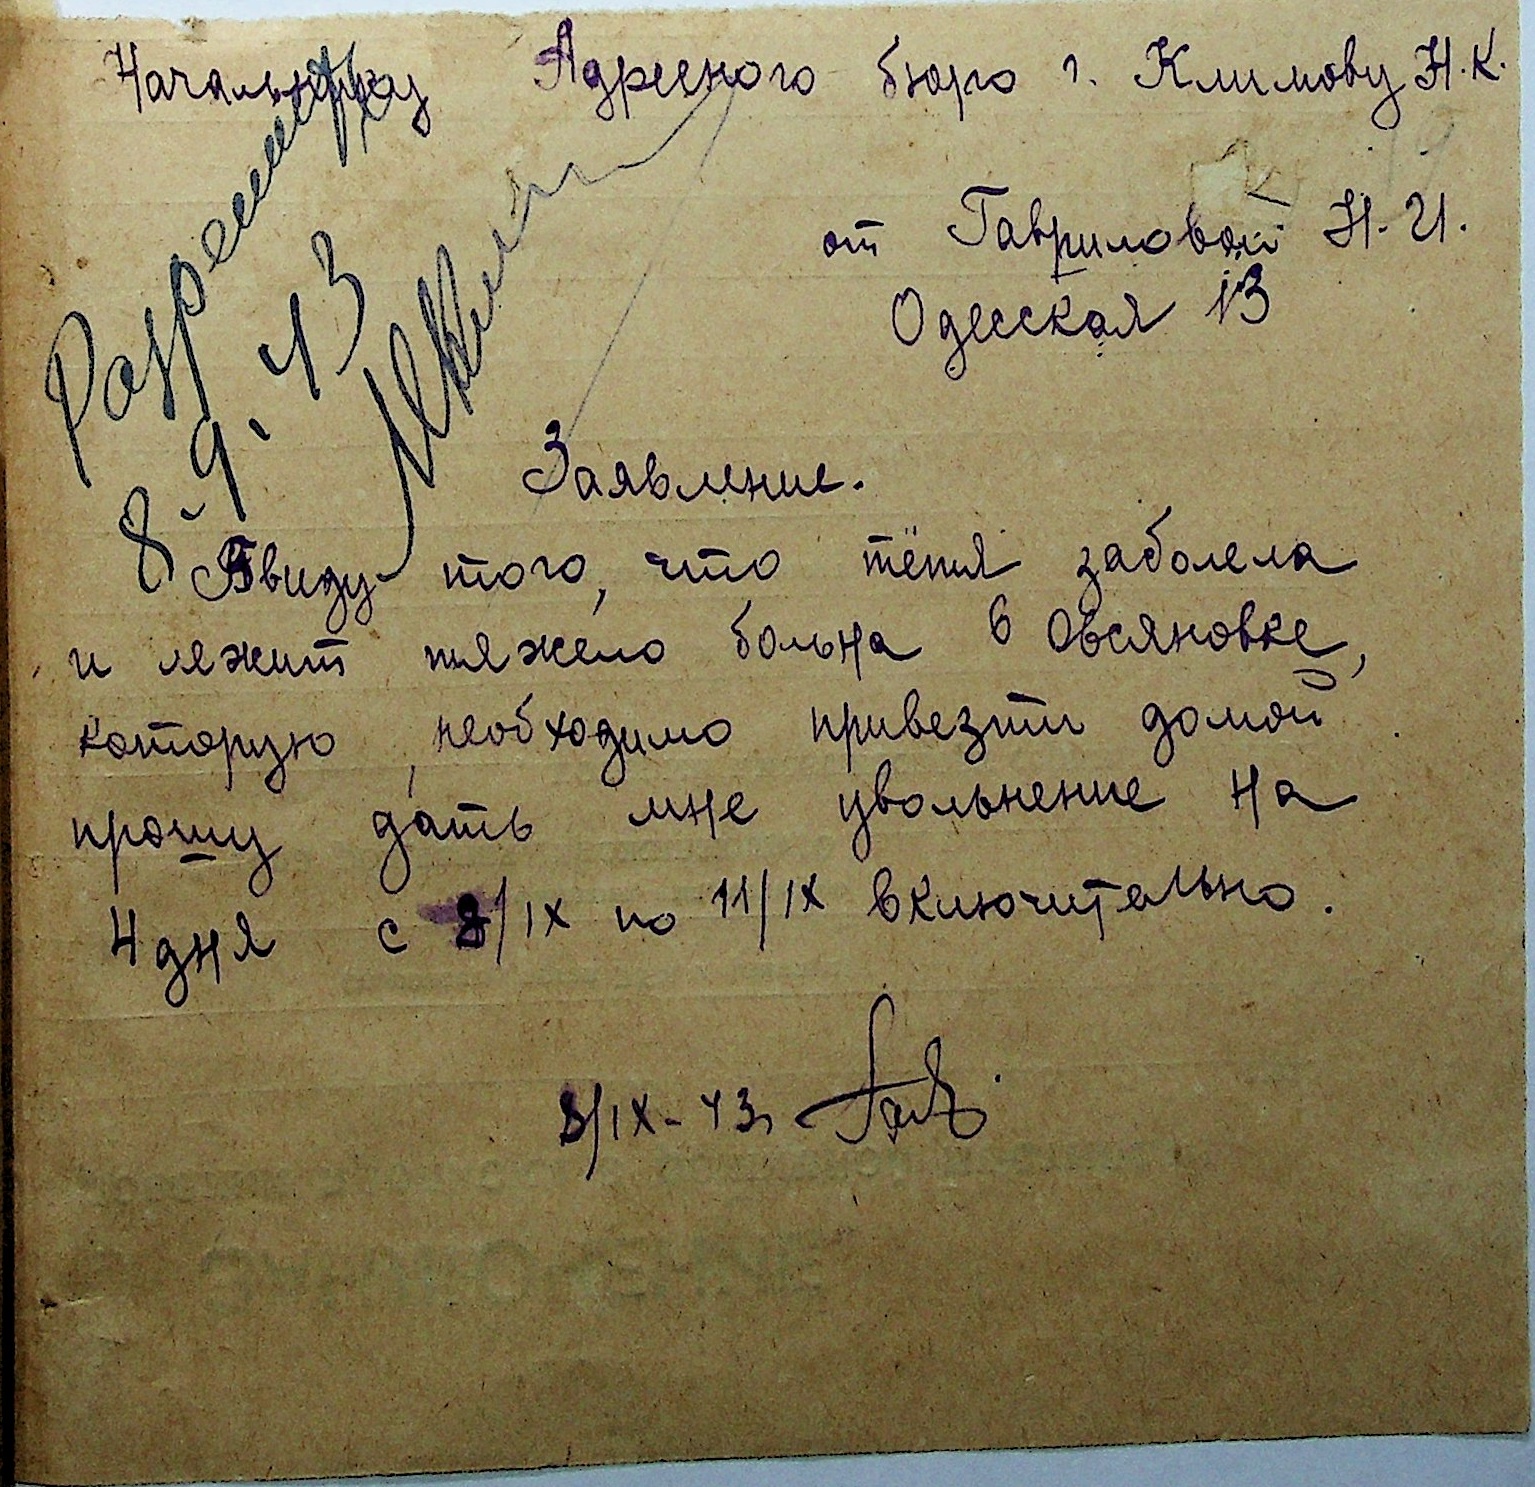 Начальнику Адресного бюро г. Климову Н.К.
от Гавриловой Н.И.
Одесская 13
Разрешить
8-9.43
Заявление.
Ввиду того, что тётя заболела
и лежит тяжело больна в Овсяновке,
которую, необходимо привезти домой
прошу дать мне увольнение на
4 дня с 8/IX по 11/IX включительно.
8/IX-43 Гав